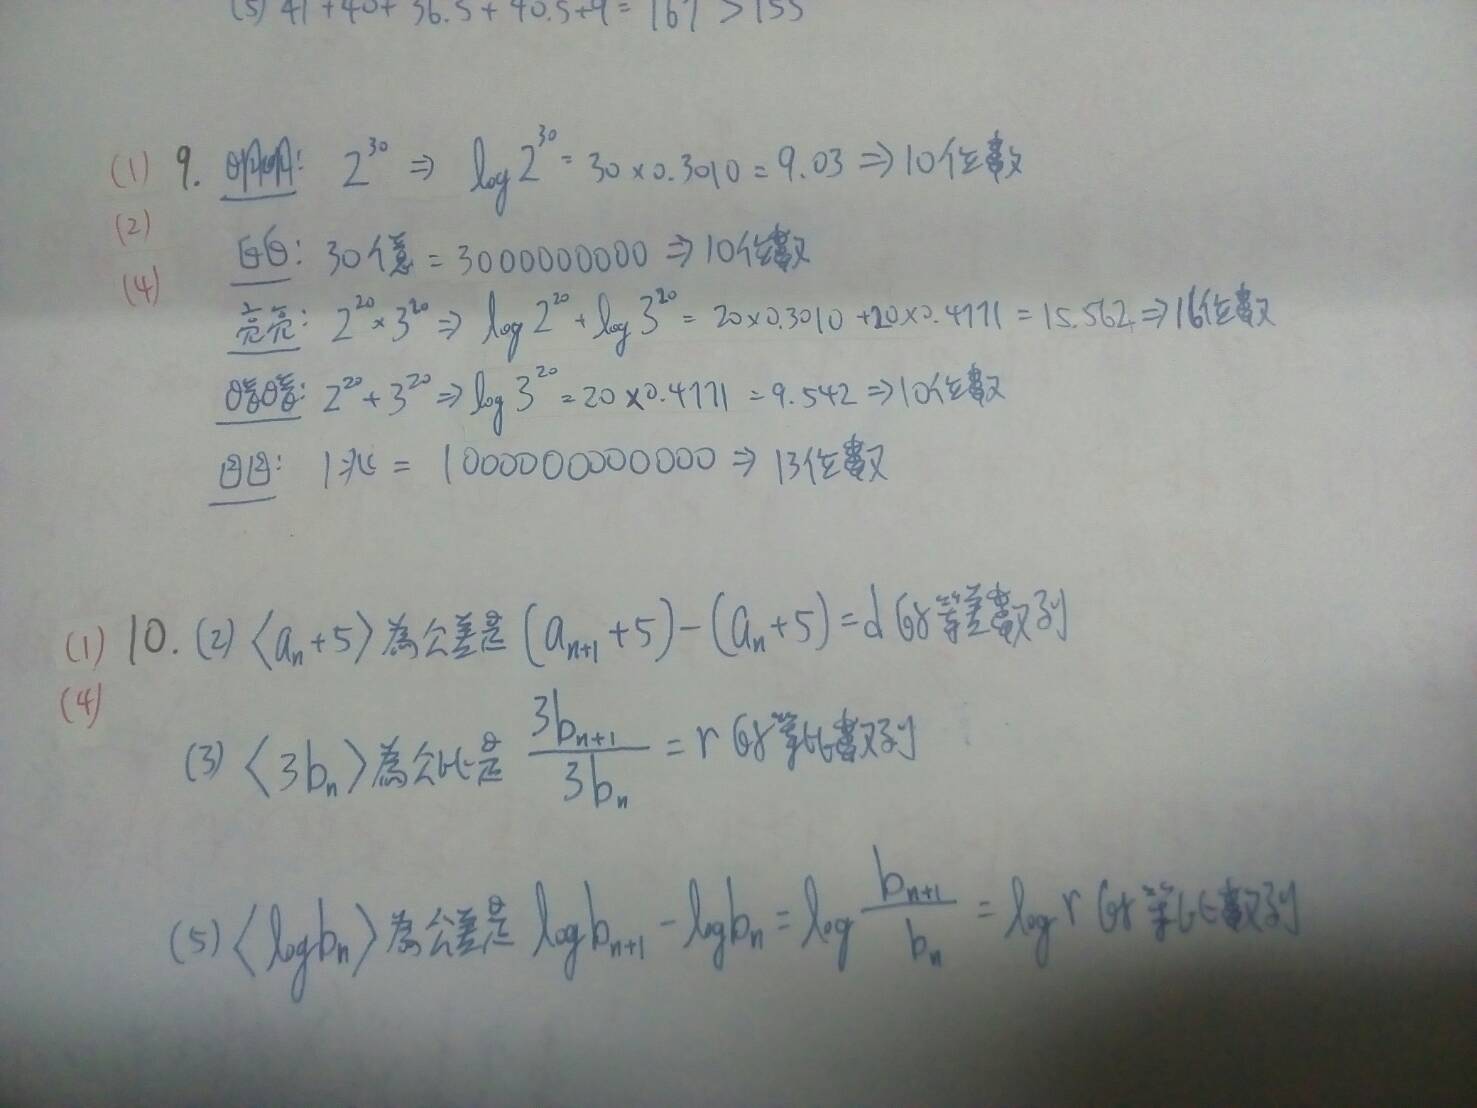 (5) 41+40+36.5+40.5+9 = 167 > 155
(1) 9. 明明: 2^30 ⇒ log 2^30 = 30×0.3010 = 9.03 ⇒ 10位數
(2)
白白: 30億 = 3000000000 ⇒ 10位數
(4)
亮亮: 2^20×3^20 ⇒ log 2^20 + log 3^20 = 20×0.3010 + 20×0.4771 = 15.562 ⇒ 16位數
暗暗: 2^20+3^20 ⇒ log 3^20 = 20×0.4771 = 9.542 ⇒ 10位數
: 1兆 = 1000000000000 ⇒ 13位數
(1) 10. (2) ⟨aₙ+5⟩為公差是 (aₙ₊₁+5)-(aₙ+5)=d 的等差數列
(4)
(3) ⟨3bₙ⟩為公比是 3bₙ₊₁/3bₙ = r 的等比數列
(5) ⟨log bₙ⟩為公差是 log bₙ₊₁ - log bₙ = log bₙ₊₁/bₙ = log r 的等比數列